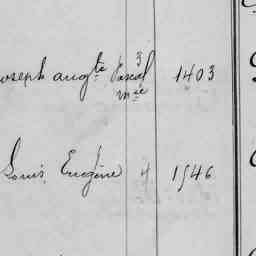 Joseph aug.te Pascal 3 1403
m.ie
Louis Eugène 4 1546